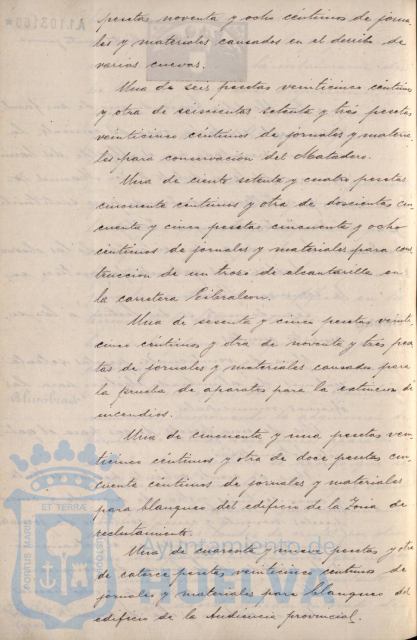 pesetas noventa y ocho céntimos de jorna
les y materiales causados en el derribo de
varias cuevas.
Una de seis pesetas veinticinco céntimos
y otra de seiscientas setenta y tres pesetas
veinticinco céntimos de jornales y materia
les para conservación del Matadero.
Una de ciento setenta y cuatro pesetas
cincuenta céntimos y otra de doscientas cin
cuenta y cinco pesetas cincuenta y ocho
céntimos de jornales y materiales para cons
trucción de un trozo de alcantarilla en
la carretera Gibraleon.
Una de sesenta y cinco pesetas veinti
cinco céntimos y otra de noventa y tres pese
tas de jornales y materiales causados para
la prueba de aparatos para la extincion de
incendios.
Una de cincuenta y una pesetas vein
ticinco céntimos y otra de doce pesetas cin
cuenta céntimos de jornales y materiales
para blanqueo del edificio de la Zona de
reclutamiento.
Una de cuarenta y nueve pesetas y otra
de catorce pesetas veinticinco céntimos de
jornales y materiales para blanqueo del
edificio de la Audiencia provincial.
PORTUS MARIS ET TERRÆ CUSTODIA
Ayuntamiento de
HUELVA